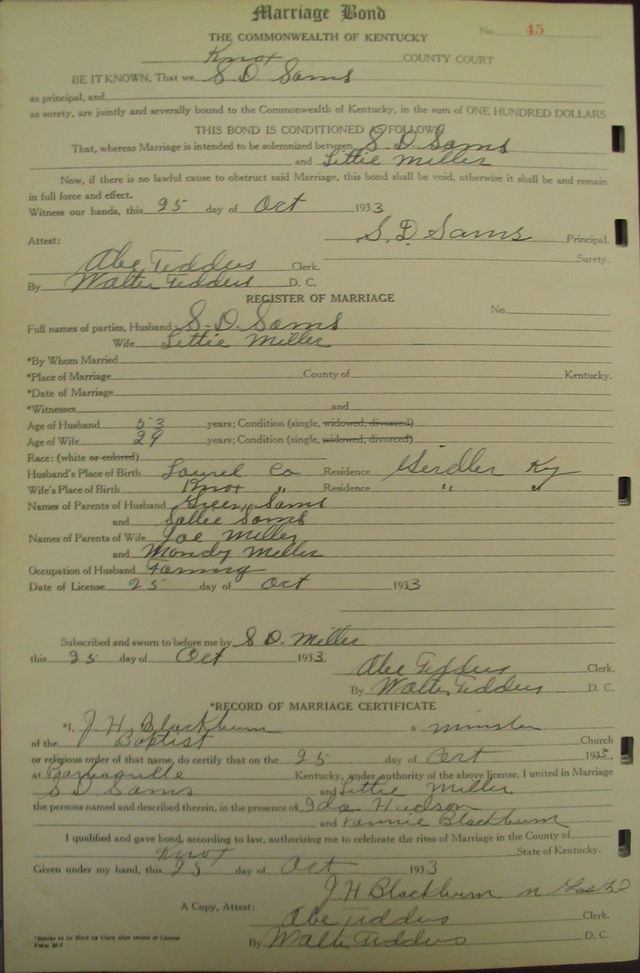 Marriage Bond
THE COMMONWEALTH OF KENTUCKY No. 45
Knox COUNTY COURT
BE IT KNOWN, That we S D. Sams
as principal, and
as surety, are jointly and severally bound to the Commonwealth of Kentucky, in the sum of ONE HUNDRED DOLLARS
THIS BOND IS CONDITIONED AS FOLLOWS
That, whereas Marriage is intended to be solemnized between S. D. Sams
and Littie Miller
Now, if there is no lawful cause to obstruct said Marriage, this bond shall be void, otherwise it shall be and remain
in full force and effect.
Witness our hands, this 25 day of Oct 1933
S. D. Sams Principal.
Attest: Surety.
Abe Fiddus Clerk.
By Walter Fiddus D. C.
REGISTER OF MARRIAGE
No.
Full names of parties, Husband S. D. Sams
Wife Littie Miller
*By Whom Married
*Place of Marriage County of Kentucky.
*Date of Marriage
*Witnesses and
Age of Husband 53 years; Condition (single, widowed, divorced)
Age of Wife 29 years; Condition (single, widowed, divorced)
Race: (white or colored)
Husband's Place of Birth Laurel Co Residence Girdler Ky
Wife's Place of Birth Knox " Residence " "
Names of Parents of Husband Green Sams
and Sallie Sams
Names of Parents of Wife Joe Miller
and Mondy Miller
Occupation of Husband Farming
Date of License 25 day of Oct 1933
Subscribed and sworn to before me by S D. Miller
this 25 day of Oct 1933
Abe Fiddus Clerk.
By Walter Fiddus D. C.
*RECORD OF MARRIAGE CERTIFICATE
*I, J H Blackburn a minster
of the Baptist Church
or religious order of that name, do certify that on the 25 day of Oct 1933
at Barbourville Kentucky, under authority of the above license, I united in Marriage
S D Sams and Littie Miller
the persons named and described therein, in the presence of Ida Hudson
and Fannie Blackburn
I qualified and gave bond, according to law, authorizing me to celebrate the rites of Marriage in the County of
Knox State of Kentucky.
Given under my hand, this 25 day of Oct 1933
J H Blackburn
A Copy, Attest: Abe Fiddus Clerk.
By Walter Fiddus D. C.
*Blanks to be filled by Clerk after return of License